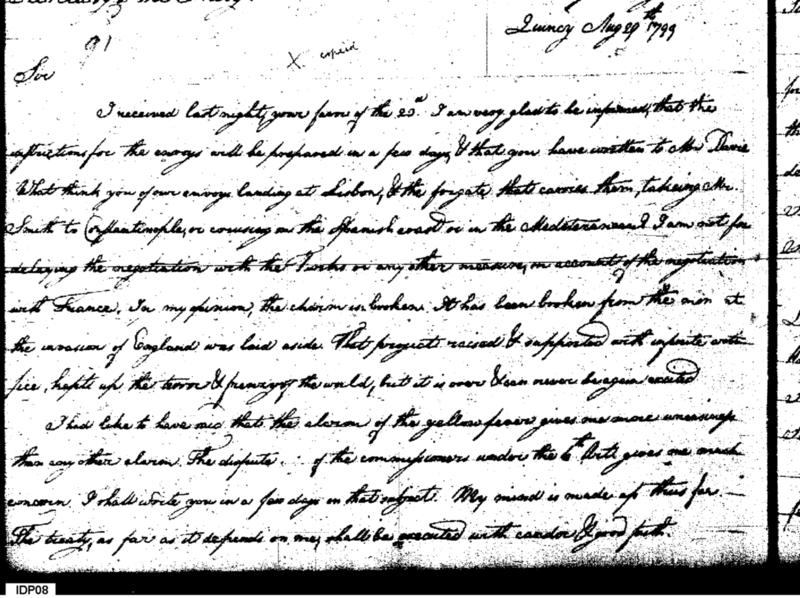 Quincy Aug 29th 1799
91
X copied
Sir
I received last night, your favor of the 23d. I am very glad to be informed, that the
instructions for the envoys will be prepared in a few days, & that you have written to Mr. Davie
What think you of our envoys landing at Lisbon, & the frigate that carries them, takeing Mr.
Smith to Constantinople, or cruising on the Spanish coast or in the Mediterranean? I am not for
delaying the negotiation with the Turks or any other measure, on account of the negotiation
with France. In my opinion, the charm is broken. It has been broken from the min at
the invasion of England was laid aside. That project, raised & supported with infinite arti-
fice, kept up the terror & frenzy of the world, but it is over & can never be again excited
I had like to have said that the alarm of the yellow fever gives me more uneasiness
than any other alarm. The dispute of the commissioners under the 6th Arti gives me much
concern. I shall write you in a few days on that subject. My mind is made up thus far
The treaty, as far as it depends on me, shall be executed with candor & good faith.
IDP08